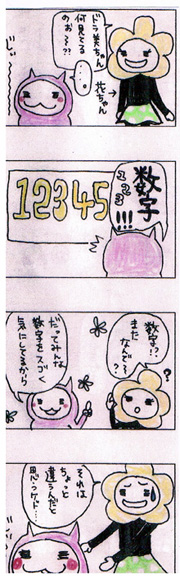 ドラ美ちゃん
何見てる
のぉ〜??
花ちゃん
・・・。
じぃー
数字
123
!!!
12345
数字!?
また
なんで?
?
だってみんな
数字をスゴく
気にしてるから
それは
ちょっと
違うんだと
思うケド…